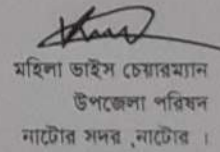 মহিলা ভাইস চেয়ারম্যান
উপজেলা পরিষদ
নাটোর সদর ,নাটোর ।